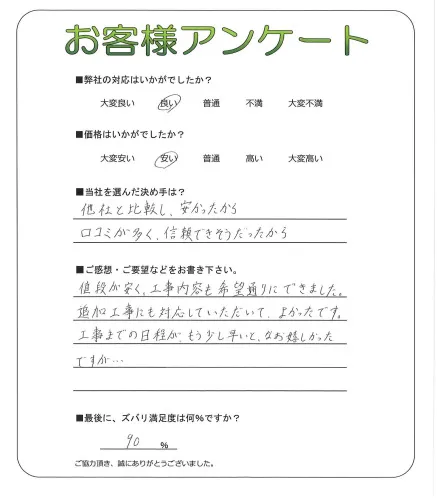 お客様アンケート
■弊社の対応はいかがでしたか？
大変良い 良い 普通 不満 大変不満
■価格はいかがでしたか？
大変安い 安い 普通 高い 大変高い
■当社を選んだ決め手は？
他社と比較し、安かったから
口コミが多く、信頼できそうだったから
■ご感想・ご要望などをお書き下さい。
値段が安く、工事内容も希望通りにできました。
追加工事にも対応していただいて、よかったです。
工事までの日程が、もう少し早いと、なお嬉しかった
ですが…
■最後に、ズバリ満足度は何％ですか？
90 ％
ご協力頂き、誠にありがとうございました。